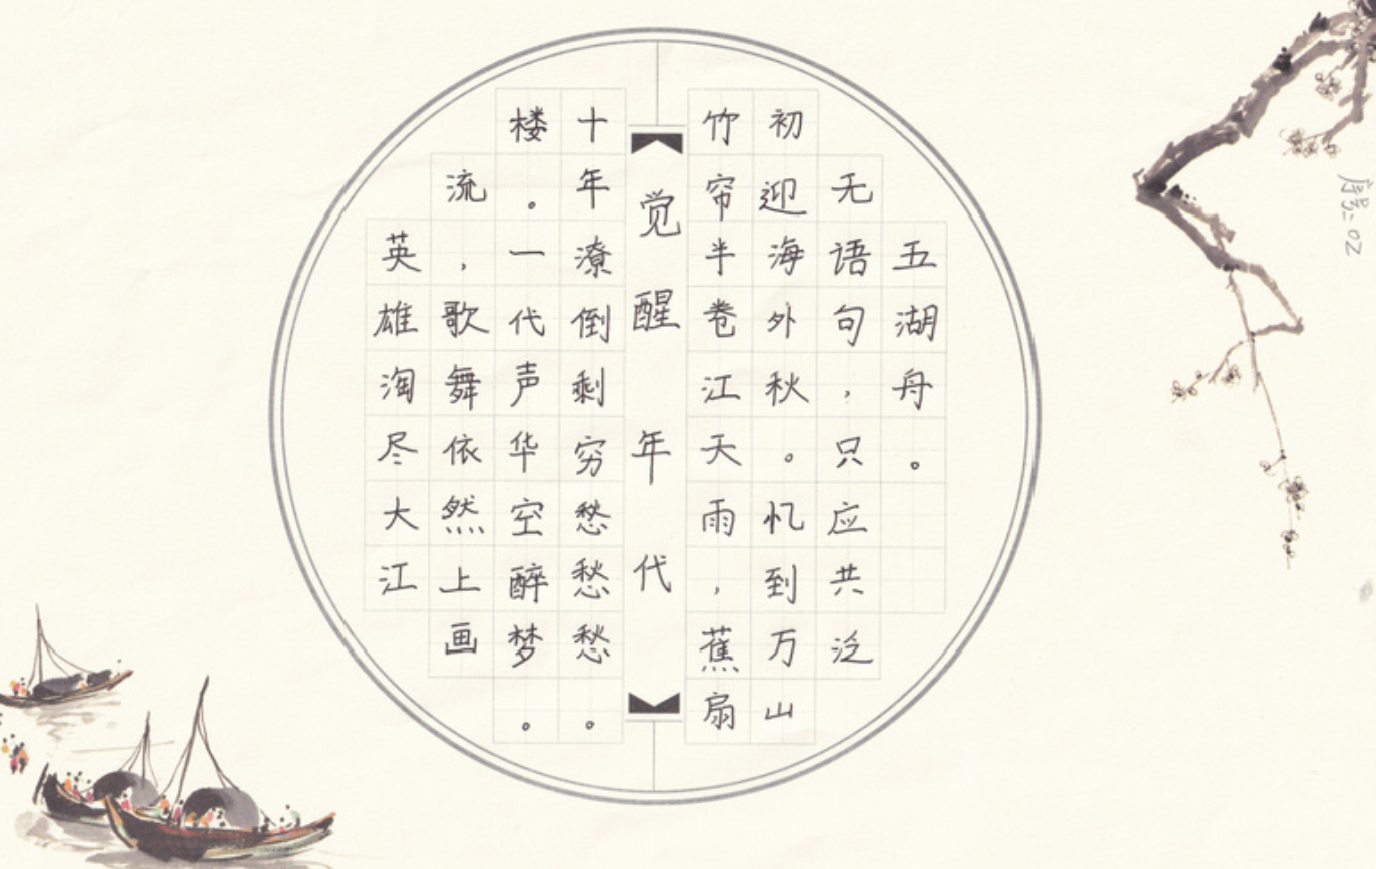 英雄淘尽大江
流，歌舞依然上画
楼。一代声华空醉梦。
十年潦倒剩穷愁愁愁。
觉醒年代
竹帘半卷江天雨，蕉扇
初迎海外秋。忆到万山
无语句，只应共泛
五湖舟。